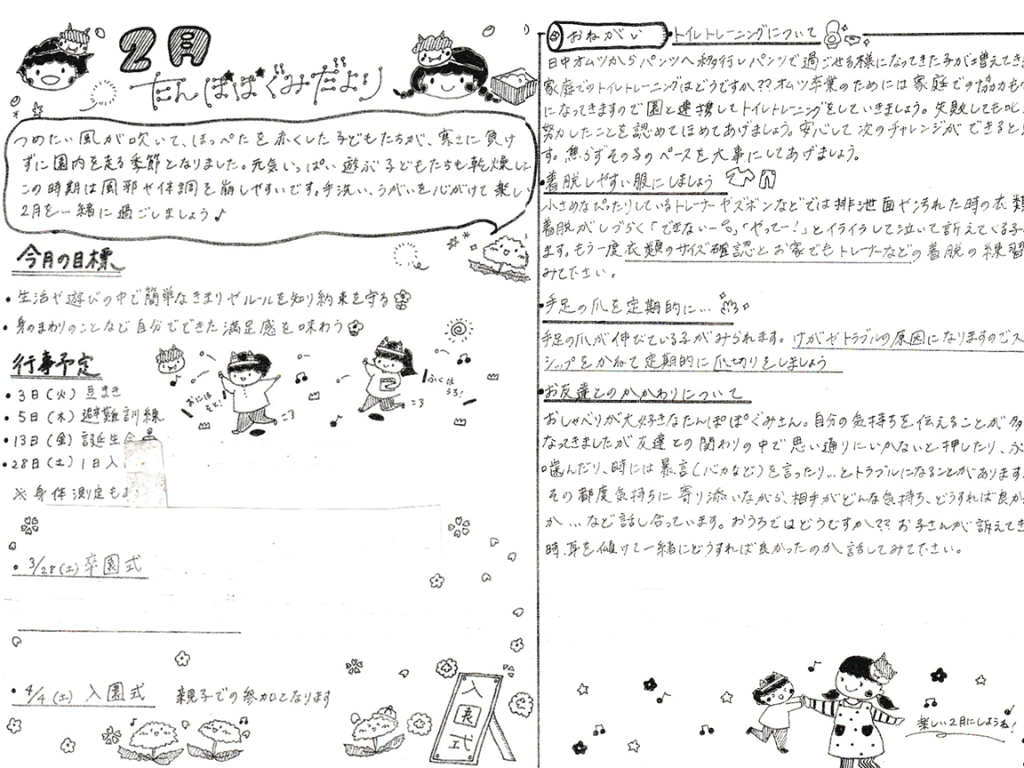 2月
たんぽぽぐみだより
つめたい風が吹いて、ほっぺたを赤くした子どもたちが、寒さに負け
ずに園内を走る季節となりました。元気いっぱい遊ぶ子どもたちも乾燥して
この時期は風邪や体調を崩しやすいです。手洗い、うがいを心がけて楽しい
2月を一緒に過ごしましょう♪
今月の目標
・生活や遊びの中で簡単なきまりやルールを知り約束を守る
・身のまわりのことなど自分でできた満足感を味わう
行事予定
・3日(火) 豆まき
・5日(木) 避難訓練
・13日(金) 誕生会
・28日(土) 1日入
※身体測定も
おにはそと!
ふくはうち!
・3/28(土) 卒園式
・4/4(土) 入園式 親子での参加となります
入園式
おねがい
・トイレトレーニングについて
日中オムツからパンツへ移行しパンツで過ごせる様になってきた子が増えてき
家庭でのトイレトレーニングはどうですか??オムツ卒業のためには家庭での協力も
になってきますので園と連携してトイレトレーニングをしていきましょう。失敗しても叱
努力したことを認めてほめてあげましょう。安心して次のチャレンジができると
す。焦らずその子のペースを大事にしてあげましょう。
・着脱しやすい服にしましょう
小さめなぴったりしているトレーナーやズボンなどでは排泄面や汚れた時の衣類
着脱がしづらく「できないーっ。」「やってー!」とイライラして泣いて訴えてくる子
ます。もう一度衣類のサイズ確認とお家でもトレーナーなどの着脱の練習
みて下さい。
・手足の爪を定期的に…
手足の爪が伸びている子がみられます。けがやトラブルの原因になりますのでス
シップをかねて定期的に爪切りをしましょう
・お友達とのかかわりについて
おしゃべりが大好きなたんぽぽぐみさん。自分の気持ちを伝えることが多
なってきましたが友達との関わりの中で思い通りにいかないと押したり、
噛んだり、時には暴言(バカなど)を言ったり…とトラブルになることがあります
その都度気持ちに寄り添いながら、相手がどんな気持ち、どうすれば良か
か…など話し合っています。おうちではどうですか??お子さんが訴えてき
時、耳を傾けて一緒にどうすれば良かったのか話してみて下さい。
楽しい2月にしようね!